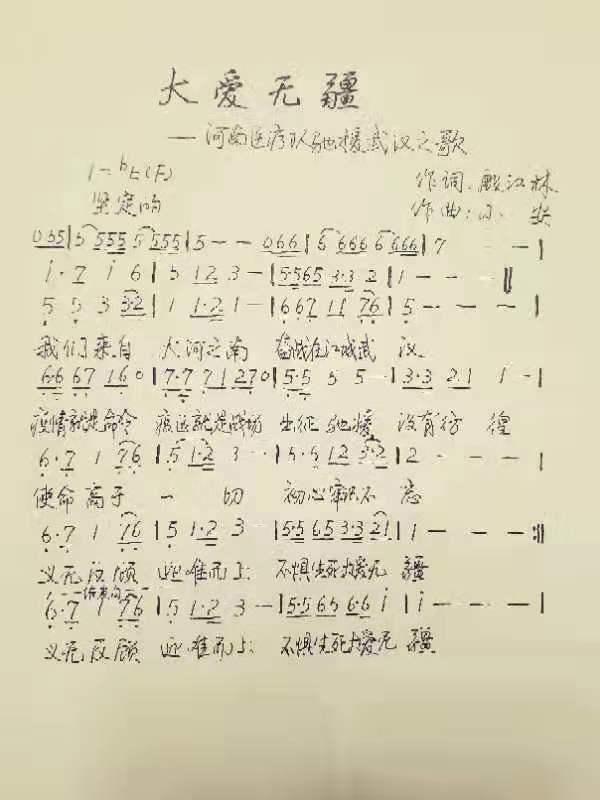 大爱无疆
——河南医疗队驰援武汉之歌
1=♭E(F) 作词:殷江林
坚定的 作曲:小安
055|5 555 5 555|5 - - 066|6 666 6 666|7 - - -|
i·7 i 6|5 12 3 -|5·565 3·3 2|1 - - -‖
5 5 3 3·2|1 1·2 1 -|667 11 76|5 - - -|
我们来自 大河之南 奋战在江城武 汉
6·6 67 16 0|7·7 71 27 0|5·5 5 5 -|3·3 2·1 1 -|
疫情就是命令 疫区就是战场 出征驰援 没有彷徨
6·7 1 76|5 1·2 3 -|5·5 12 3·2|2 - - -|
使命高于 一切 初心牢记不忘
6·7 1 76|5 1·2 3 -|5·5 65 3·3 21|1 - - -:‖
义无反顾 迎难而上 不惧生死大爱无 疆
结束句
6·7 1 76|5 1·2 3 -|5·5 65 6·6 i|i - - -|
义无反顾 迎难而上 不惧生死大爱无 疆